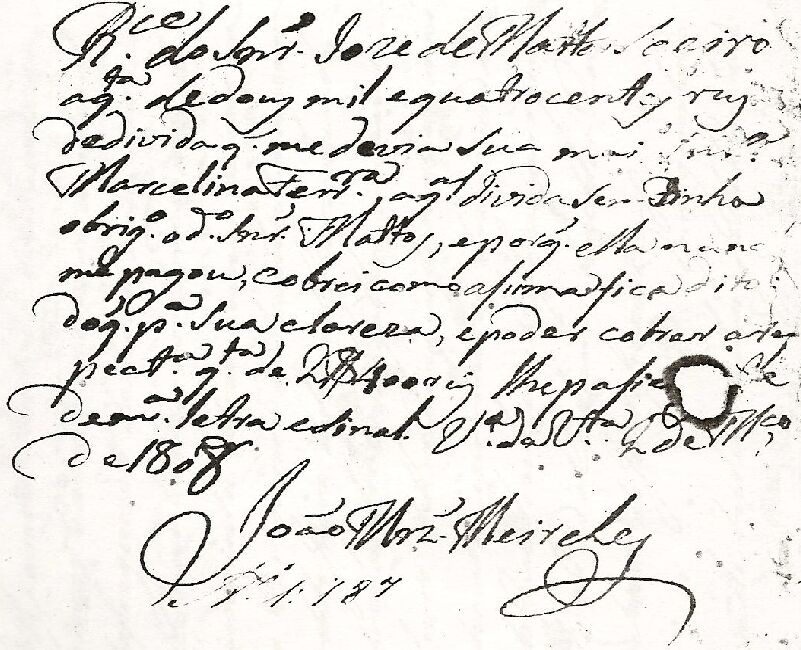 R.ce do Snr. Joze de Mattos Soeiro
a q.ta de dous mil e quatrocentos reis
de divida q. me devia sua mai Snr.ª
Marcelina Ferr.ra a q.al divida Senzinha
obrig.º o d.º Snr. Mattos, e porq. ella nunc
me pagou, cobrei como asima fica dito
do q. p.ª sua clareza, e poder cobrar a res
pect.ª q.ta de 2$400 reis lhe pasei
de m.ª letra e sinal. V.ª da V.ta 2 de M.ço
de 1808
João Mrz. Meireles
N. 1. 187